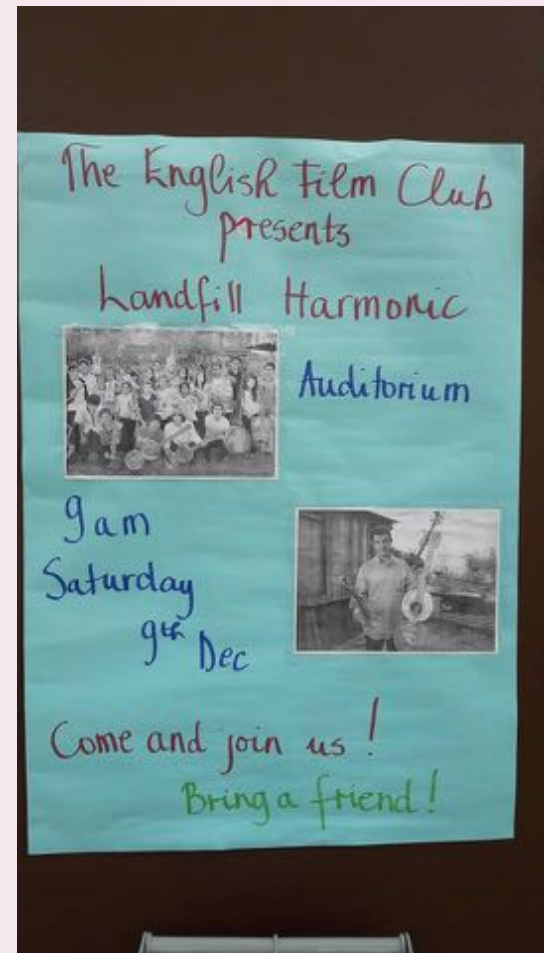 The English Film Club
presents
Landfill Harmonic
Auditorium
9am
Saturday
9th Dec
Come and join us!
Bring a friend!